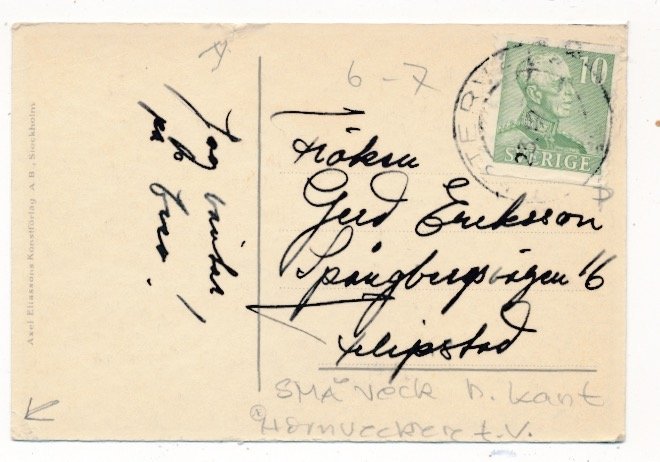 Axel Eliassons Konstförlag A.B., Stockholm
Jag väntar
på
brev!
6-7
10
SVERIGE
Fröken
Gerd Eriksson
Spångbergsvägen 16
Filipstad
SMÅ VECK n. kant
Hörnvecker t.v.